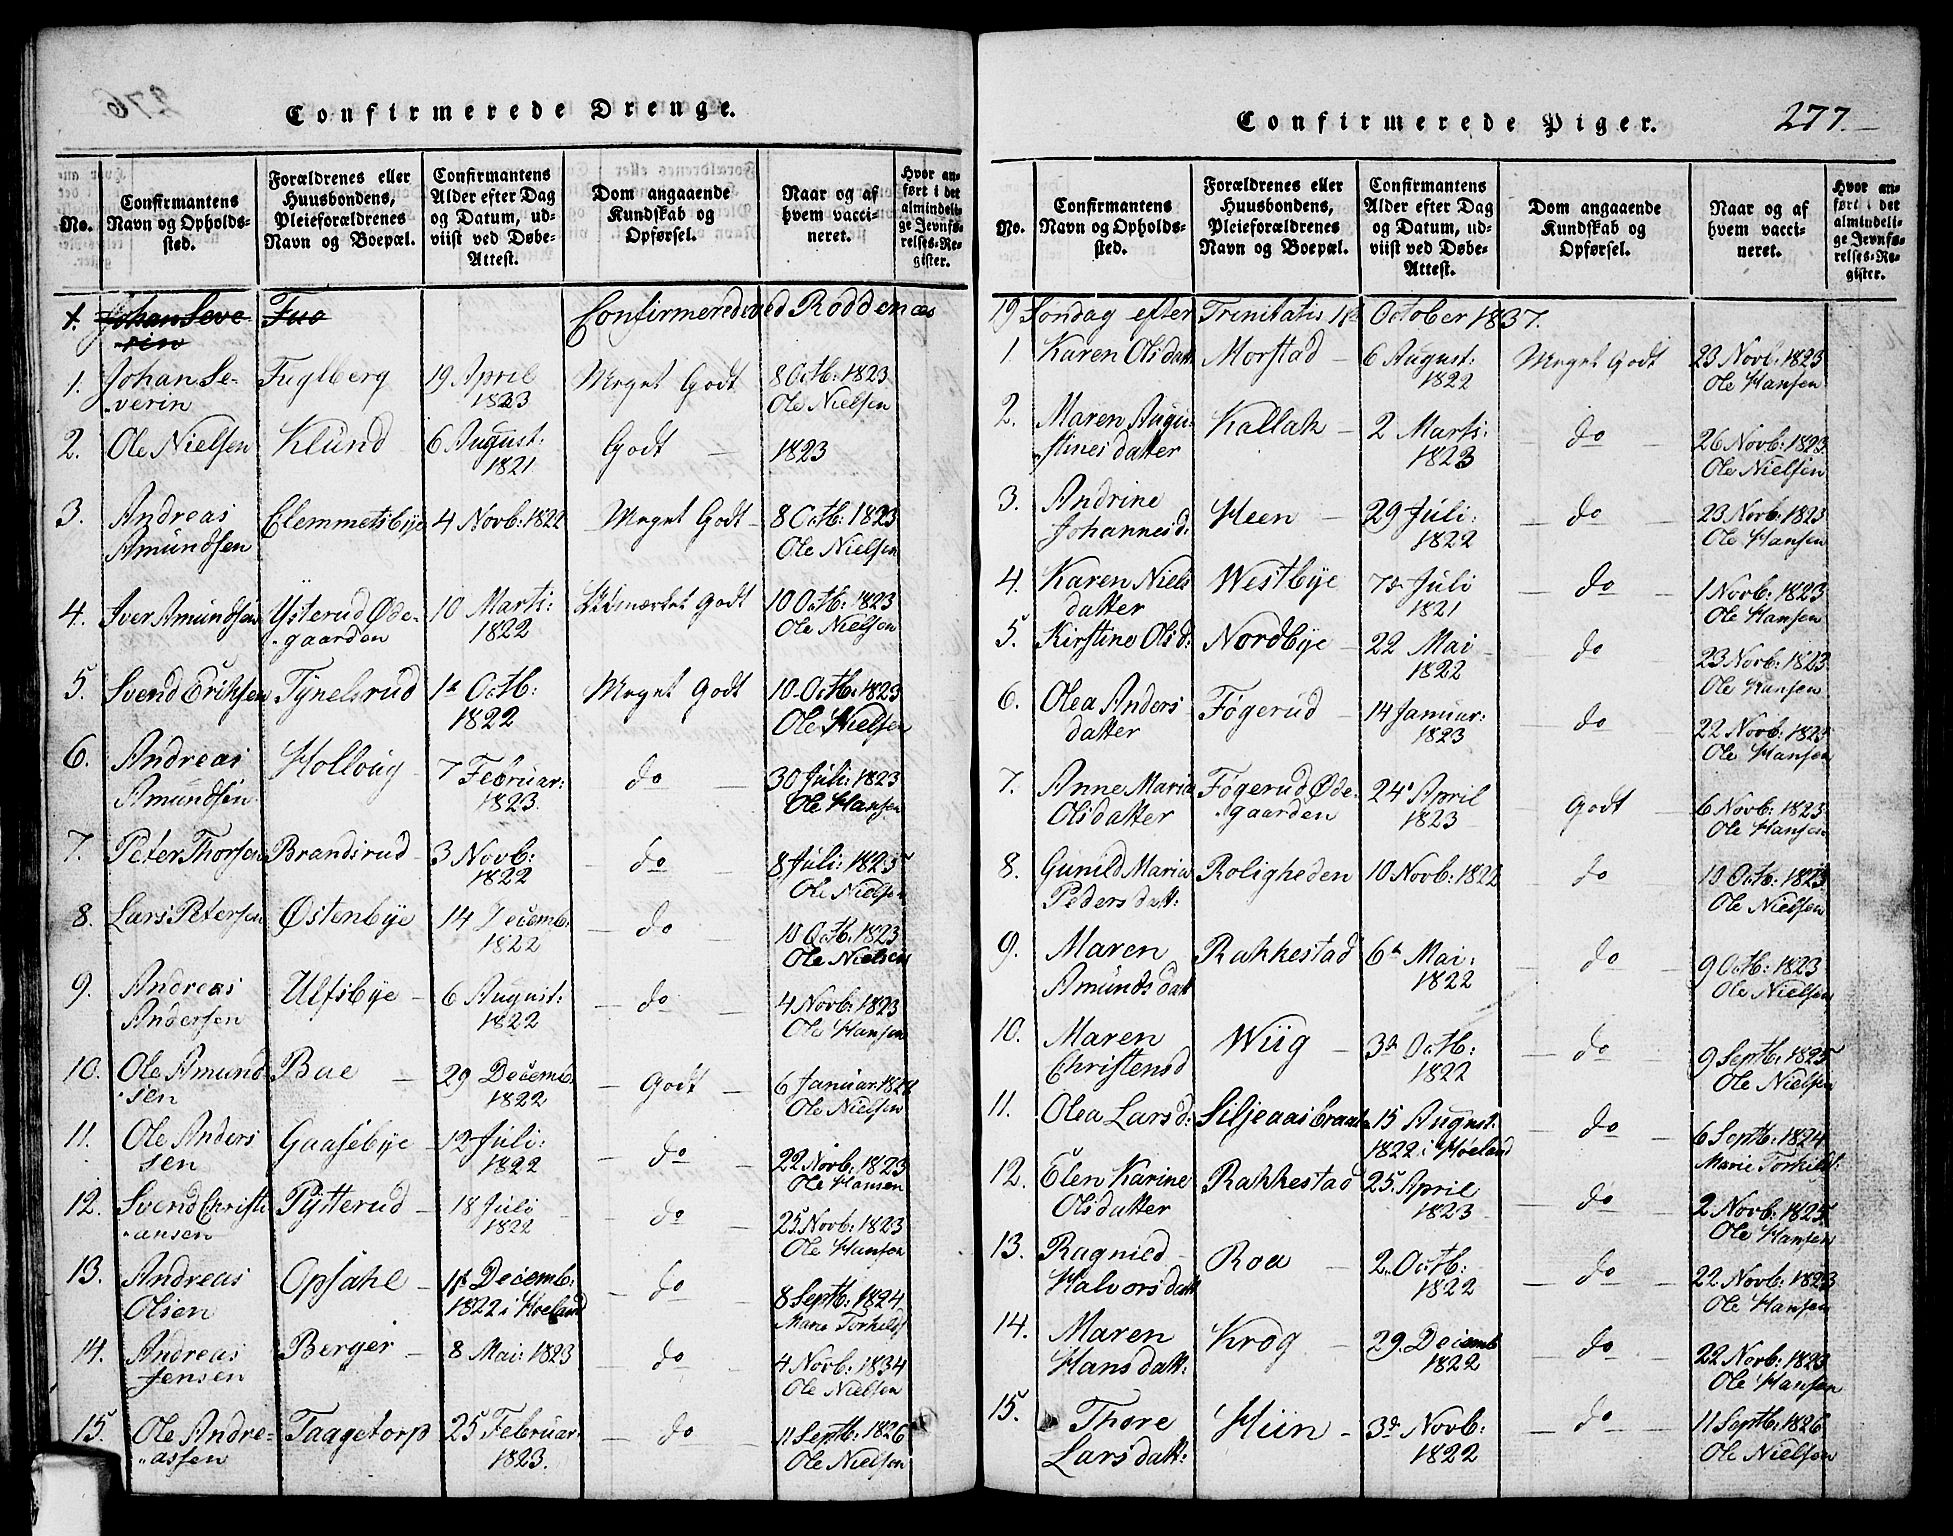 Confirmerede Drenge.
No.
Confirmantens
Navn og Opholds-
sted.
Forældrenes eller
Huusbondens,
Pleieforældrenes
Navn og Boepæl.
Confirmantens
Alder efter Dag
og Datum, ud-
viist ved Døbe-
Attest.
Dom angaaende
Kundskab og
Opførsel.
Naar og af
hvem vacci-
neret.
Hvor an-
ført i det
almindeli-
ge Jevnfø-
relses-Re-
gister.
1. Johan Seve Fuo Confirmerede ved Röddenæs
rin
1. Johan Se- Fuglberg 19 April Meget Godt 8 Octb: 1823
verin 1823 Ole Nielsen
2. Ole Nielsen Klund 6 August: Godt — 1823
1821
3. Andreas Clemmetsbye 4 Novb: 1822 Meget Godt 8 Octb: 1823
Amundsen Ole Nielsen
4. Iver Amundsen Ysterud Øde- 10 Marts: Udmærket Godt 10 Octb: 1823
gaarden 1822 Ole Nielsen
5. Svend Eriksen Tynelsrud 1ste Octb: Meget Godt 10 Octb: 1823
1822 Ole Nielsen
6. Andreas Holloug 7 Februar: do 30 Juli: 1823
Amundsen 1823. Ole Hansen
7. Peter Thorsen Brandsrud 3 Novb: — do — 8 Juli: 1825
1822 Ole Nielsen
8. Lars Petersen Østenbye 14 Decemb: — do — 10 Octb: 1823
1822 Ole Nielsen
9. Andreas Ulfsbye 6 August: — do — 4 Novb: 1823
Andersen 1822 Ole Hansen
10. Ole Amund Bae — 29 Decemb. — Godt — 6 Januar
sen 1822 Ole Nielsen
11. Ole Anders Gaasebye 12 Juli: — do — 22 Novb. 1823
sen 1822 Ole Hansen
12. Svend Christi Pytterud 18 Juli — do — 25 Novb: 1823
ansen 1822 Ole Hansen
13. Andreas Opsahl Decemb: — do — 8 Septb: 1824
Olsen 1822 i Høeland Marie Torkilds
14. Andreas Berger 8 Mai: 1823 — do — 4 Novb: 1834
Jensen Ole Nielsen
15. Ole Andre- Taagetorp 25 Februar: — do — 11 Septb: 1826
assen 1823. Ole Nielsen
Confirmerede Piger. 277.
No.
Confirmantens
Navn og Opholds-
sted.
Forældrenes eller
Huusbondens,
Pleieforældrenes
Navn og Boepæl.
Confirmantens
Alder efter Dag
og Datum, ud-
viist ved Døbe-
Attest.
Dom angaaende
Kundskab og
Opførsel.
Naar og af
hvem vacci-
neret.
Hvor an-
ført i det
almindeli-
ge Jevnfø-
relses-Re-
gister.
19 Søndag efter Trinitatis 1ste October 1837.
1 Karen Olsdatt Morstad 6 August: Meget Godt 23 Novb: 1823
1822 Ole Hansen
2. Maren Augu- Kallak 2 Marts: — do — 26 Novb: 1823
stines datter 1823 Ole Nielsen
3. Andrine Heen 29 Juli: — do — 23 Novb: 1823
Johannesd: 1822 Ole Hansen
4. Karen Niels Westbye 7de Juli do 1 Novb: 1823
datter 1821 Ole Hansen
5. Kirstine Olsd: Nordbye 22 Mai do 23 Novb: 1823
1822 Ole Hansen
6. Olea Anders Fögerud 14 Januar: do 22 Novb: 1825
datter 1823 Ole Hansen
7. Anne Maria Fögerud Øde- 24 April Godt 6 Novb: 1823
Olsdatter gaarden 1823 Ole Hansen
8. Gunild Maria Roligheden 10 Novb: 1822 do 10 Octb: 1823
Peders datt: Ole Nielsen
9. Maren Rakkestad 6te Mai: — do — 9 Octb: 1823
Amunds datt 1822 Ole Nielsen
10. Maren Wiig 3de Octb: — do — 9 Septb: 1825
Christensd 1822 Ole Nielsen
11. Olea Larsd: Siljeaasbraat 15 August: — do — 6 Septb: 1824
1822 i Høeland Marie Torkilds:
12. Elen Karine Rakkestad 25 April — do — 2 Novb: 1825
Olsdatter 1823 Ole Hansen
13. Ragnild Roa 2. Octb: — do — 22 Novb: 1823
Halvorsdatt 1822 Ole Hansen
14. Maren Krog 29. Decemb — do — 22 Novb: 1823
Hans datt: 1822 Ole Hansen
15. Thore Hiin 3de Novb: — do — 11 Septb: 1826
Lars datt: 1822 Ole Nielsen